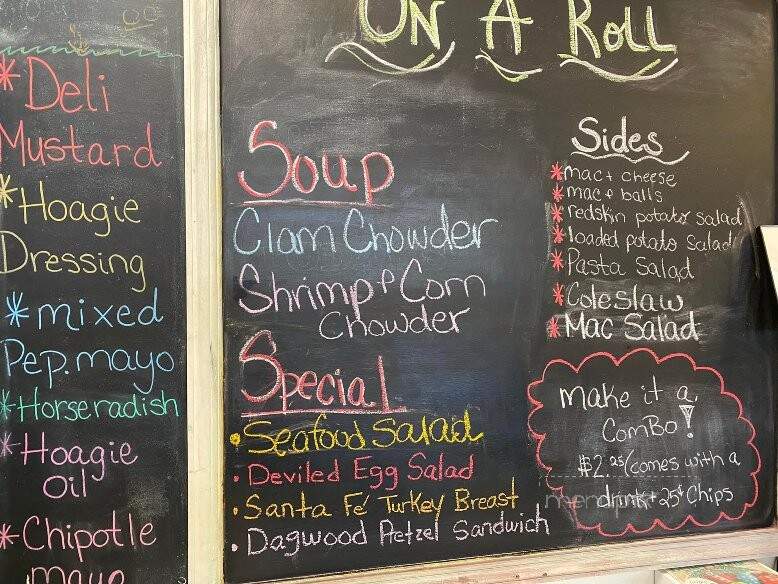 *Deli
Mustard
*Hoagie
Dressing
*mixed
Pep. mayo
*Horseradish
*Hoagie
oil
*Chipotle
mayo
On A Roll
Soup
Clam Chowder
Shrimp & Corn
Chowder
Special
• Seafood Salad
• Deviled Egg Salad
• Santa Fé Turkey Breast
• Dagwood Pretzel Sandwich
Sides
*mac + cheese
*mac & balls
*redskin potato salad
*loaded potato salad
*Pasta Salad
*Coleslaw
*Mac Salad
make it a
ComBo!
$2.25 (comes with a
drink + 25¢ Chips